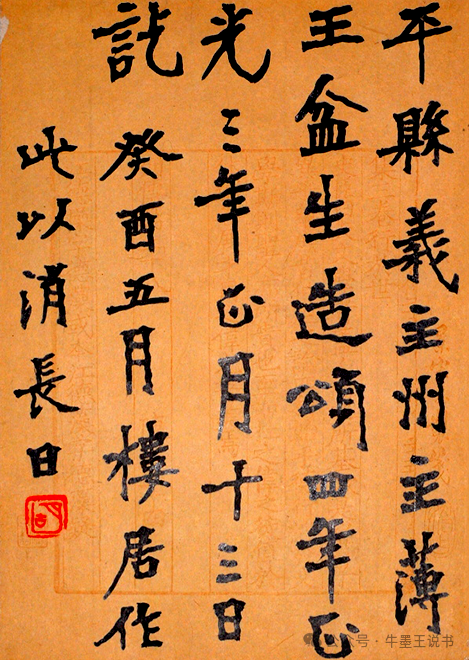 平縣義主州主薄
王盆生造頌四年正
光三年正月十三日
訖 癸酉五月樓居作
此以消長日
公众号 · 牛墨王说书